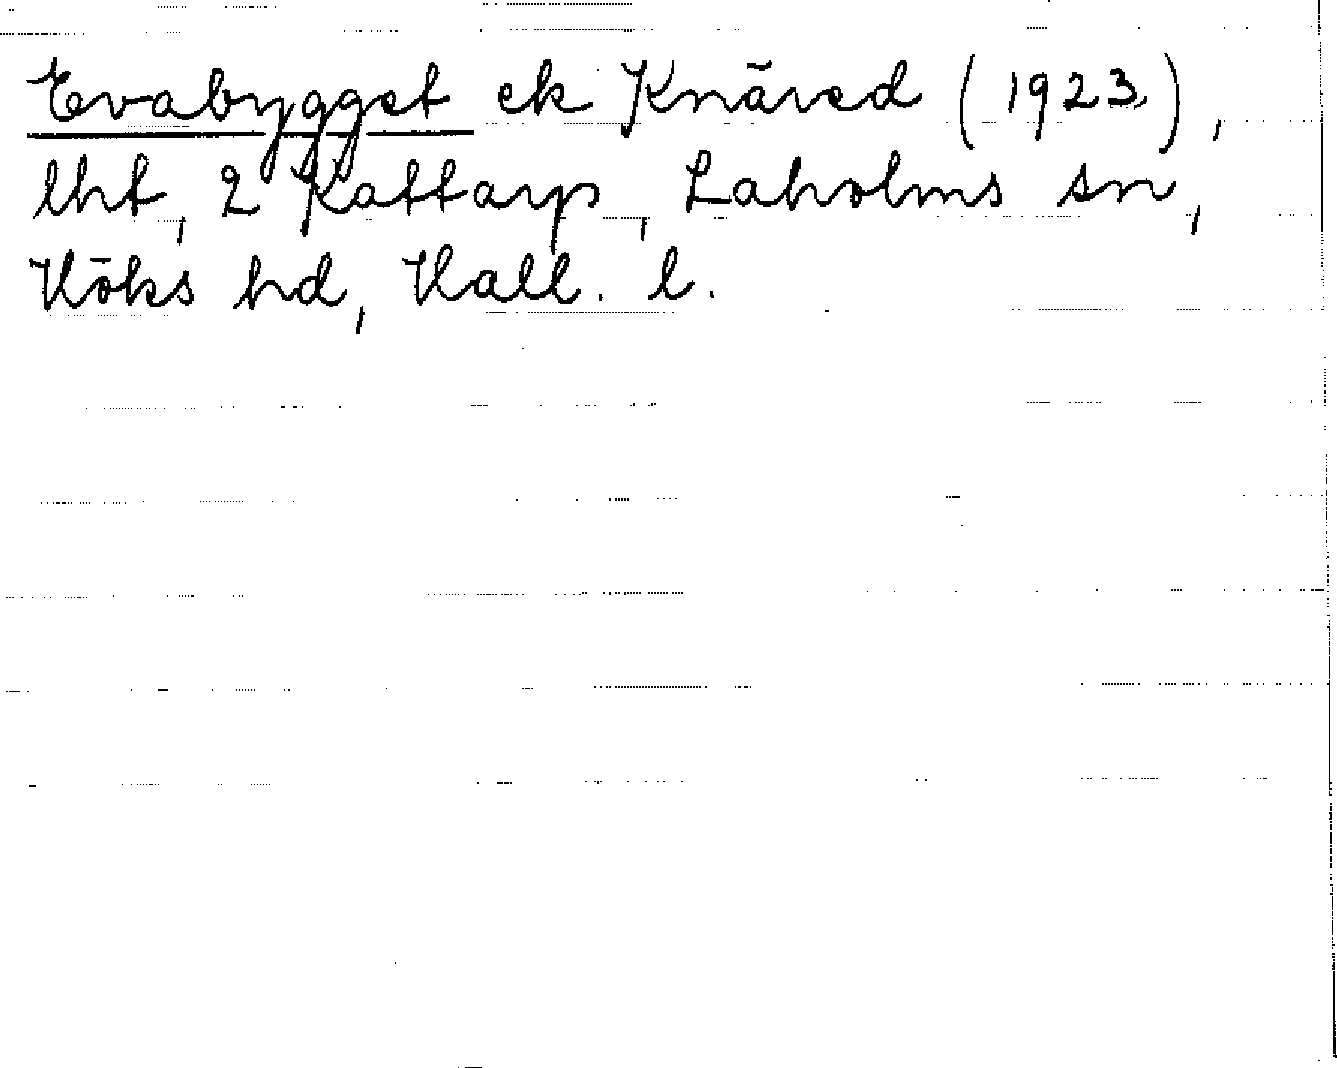 Evabygget ek Knäred (1923),
lht, 2 Kattarp, Laholms sn,
Höks hd, Hall. l.